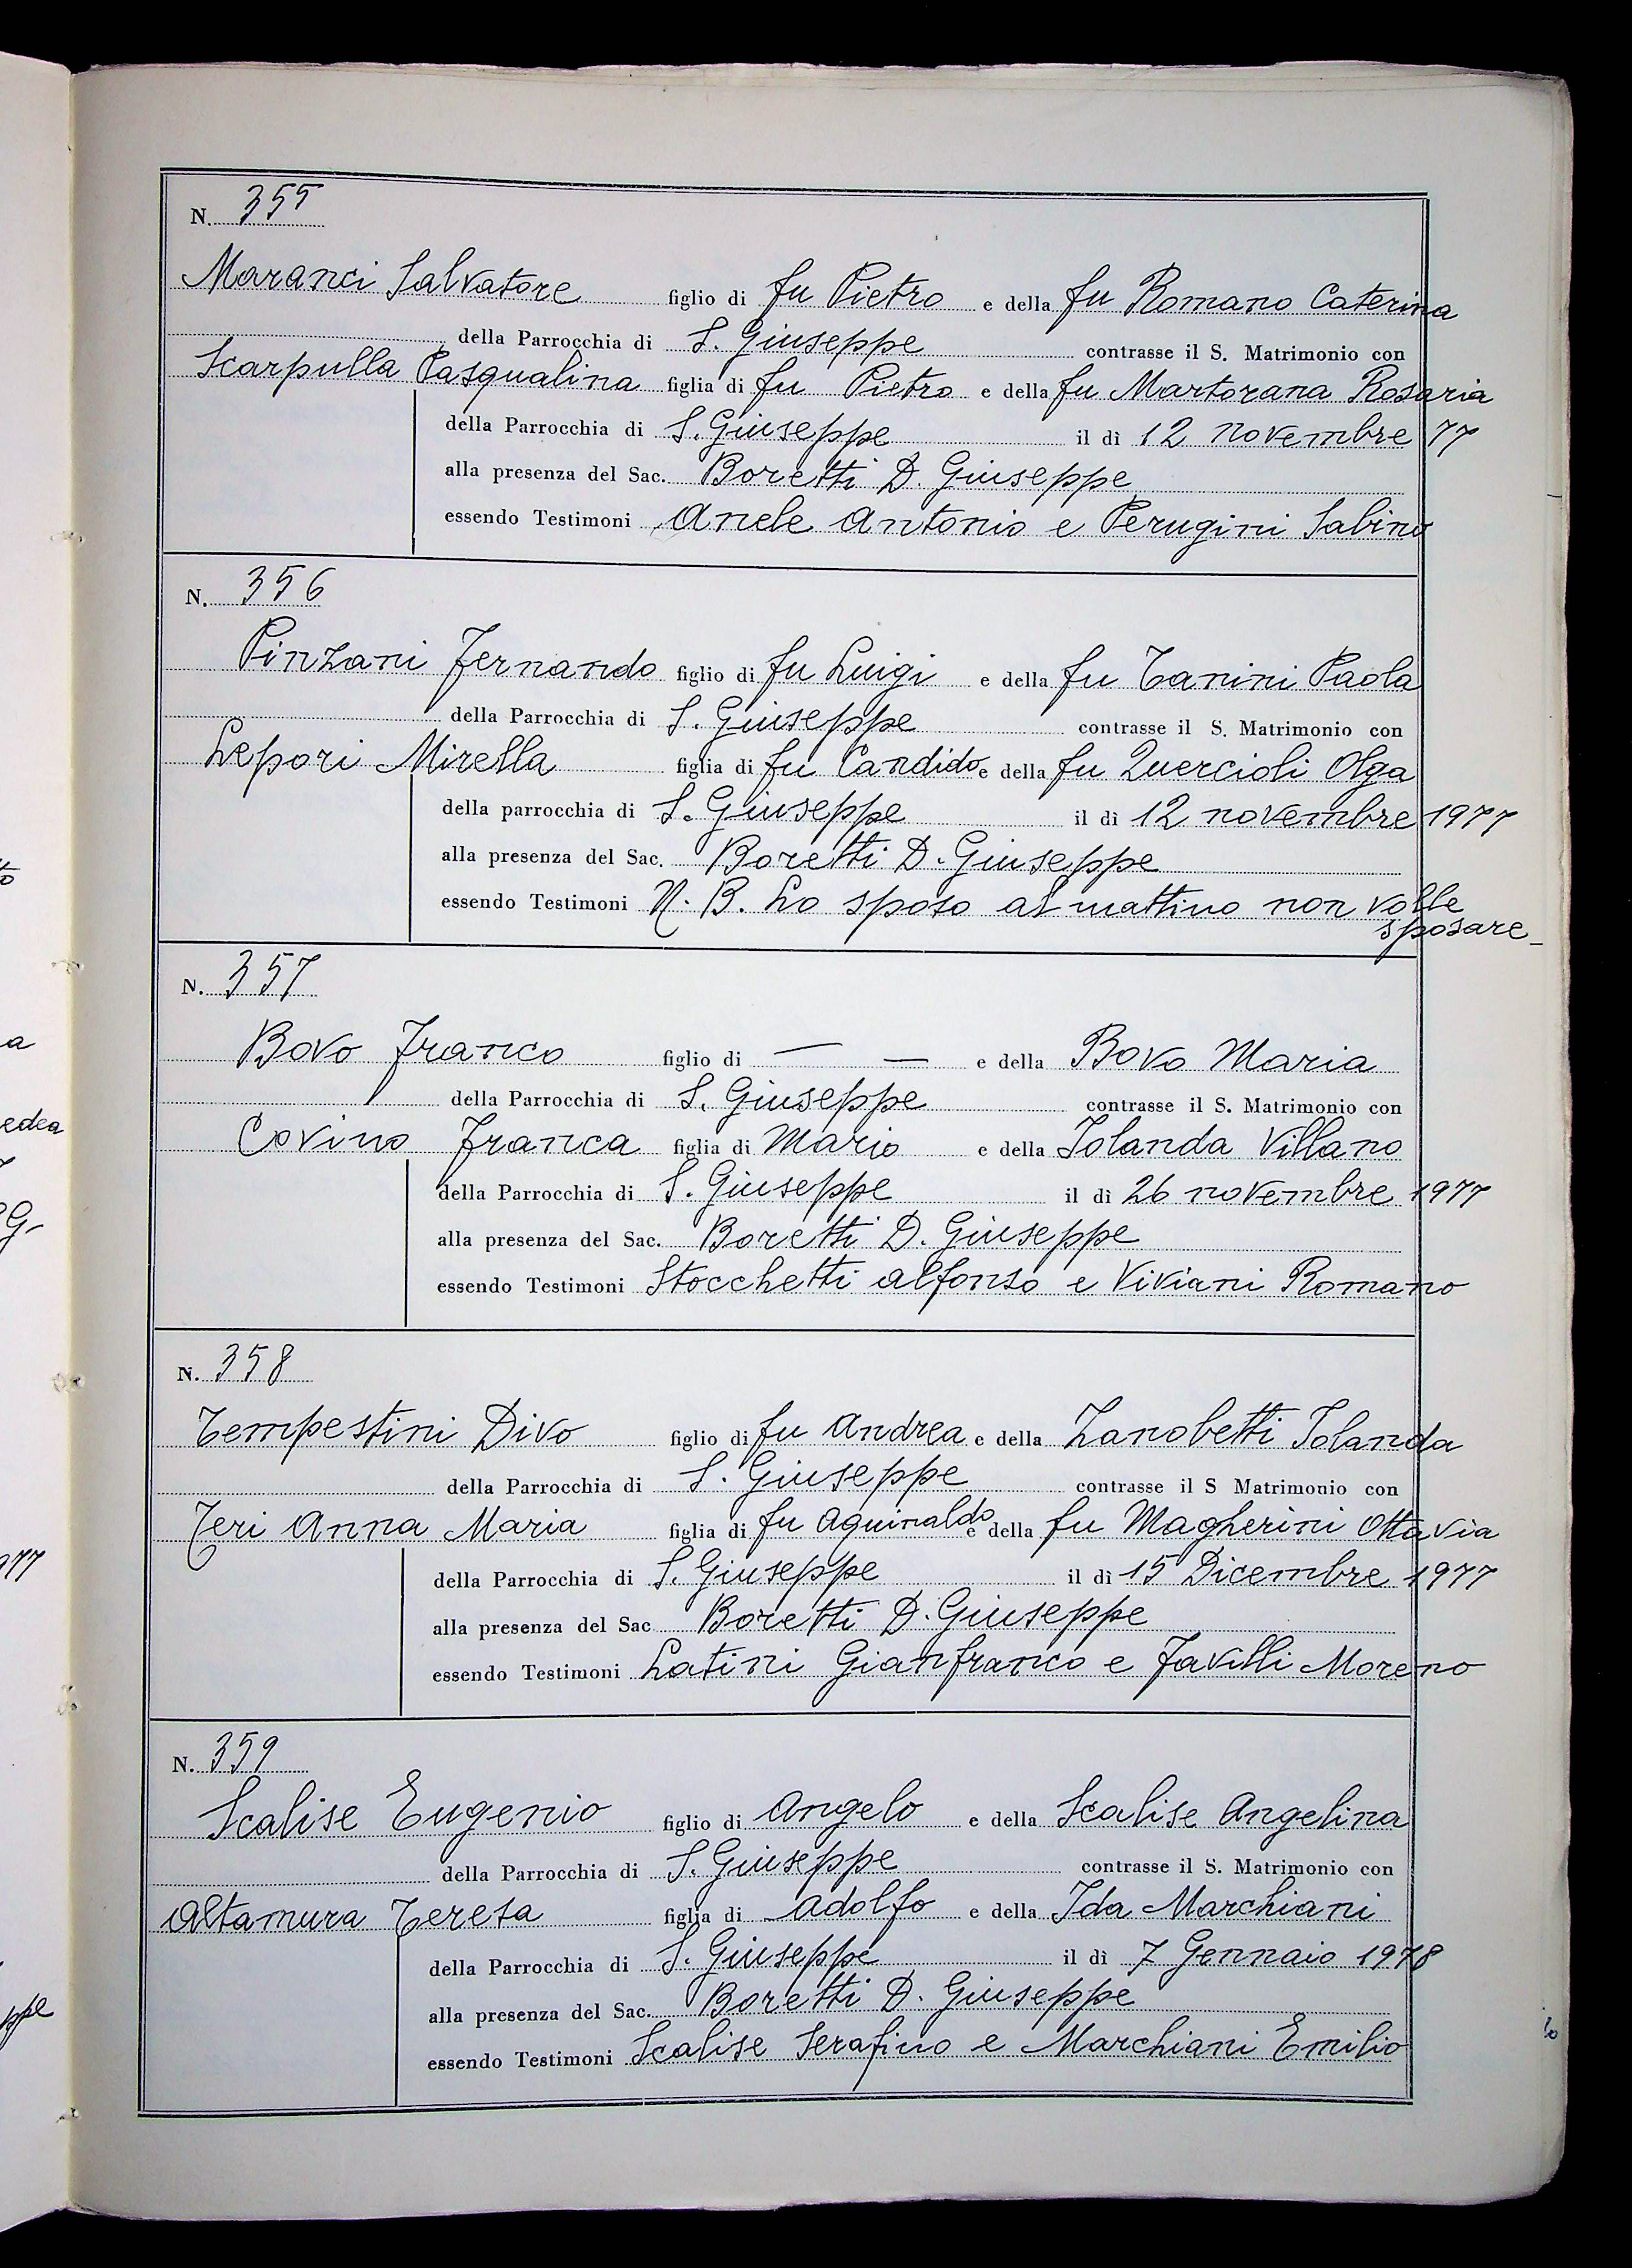 N. 355
Maranci Salvatore figlio di fu Pietro e della fu Romano Caterina
della Parrocchia di S. Giuseppe contrasse il S. Matrimonio con
Scarpulla Pasqualina figlia di fu Pietro e della fu Martorana Rosaria
della Parrocchia di S. Giuseppe il dì 12 novembre 77
alla presenza del Sac. Boretti D. Giuseppe
essendo Testimoni Anele Antonio e Perugini Sabino
N. 356
Pinzani Fernando figlio di fu Luigi e della fu Tanini Paola
della Parrocchia di S. Giuseppe contrasse il S. Matrimonio con
Lepori Mirella figlia di fu Candido e della fu Quercioli Olga
della parrocchia di S. Giuseppe il dì 12 novembre 1977
alla presenza del Sac. Boretti D. Giuseppe
essendo Testimoni N. B. Lo sposo al mattino non volle
sposare
N. 357
Bovo Franco figlio di — — e della Bovo Maria
della Parrocchia di S. Giuseppe contrasse il S. Matrimonio con
Covino Franca figlia di Mario e della Iolanda Villano
della Parrocchia di S. Giuseppe il dì 26 novembre 1977
alla presenza del Sac. Boretti D. Giuseppe
essendo Testimoni Stocchetti Alfonso e Viviani Romano
N. 358
Tempestini Divo figlio di fu Andrea e della Zanobetti Iolanda
della Parrocchia di S. Giuseppe contrasse il S Matrimonio con
Teri Anna Maria figlia di fu Aguinaldo e della fu Magherini Ottavia
della Parrocchia di S. Giuseppe il dì 15 Dicembre 1977
alla presenza del Sac Boretti D. Giuseppe
essendo Testimoni Latini Gianfranco e Favilli Moreno
N. 359
Scalise Eugenio figlio di Angelo e della Scalise Angelina
della Parrocchia di S. Giuseppe contrasse il S. Matrimonio con
Altamura Teresa figlia di Adolfo e della Ida Marchiani
della Parrocchia di S. Giuseppe il dì 7 Gennaio 1978
alla presenza del Sac. Boretti D. Giuseppe
essendo Testimoni Scalise Serafino e Marchiani Emilio